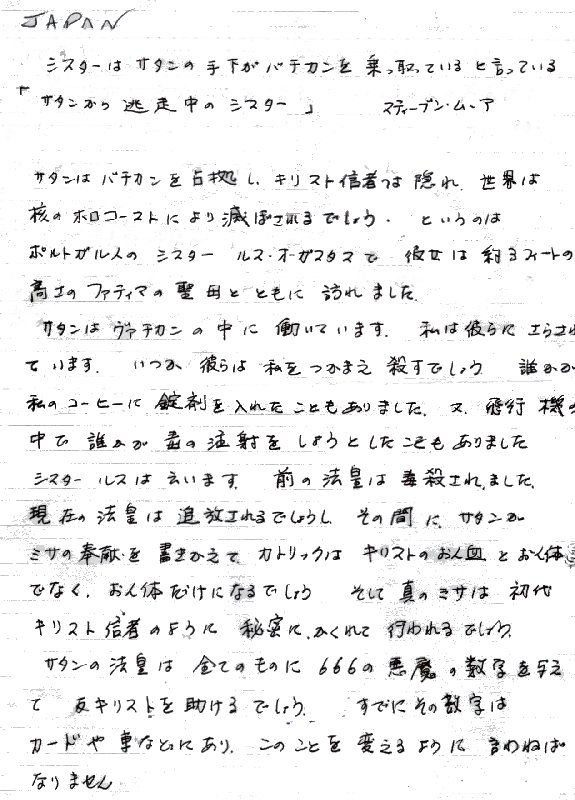 JAPAN
シスターは サタンの 手下が バチカンを 乗っ取っている と言っている
「サタンから 逃走中の シスター」 スティーブン・ムーア
サタンは バチカンを 占拠し、キリスト信者は 隠れ、世界は
核の ホロコーストに より 滅ぼされるでしょう. というのは
ポルトガル人の シスター ルス・オーガスタスで 彼女は 約3フィートの
高さの ファティマの 聖母と ともに 訪れました.
サタンは ヴァチカンの 中に 働いています. 私は彼らに さらされ
ています. いつか 彼らは 私を つかまえ 殺すでしょう 誰かが
私の コーヒーに 錠剤を 入れた こともありました. 又、飛行機の
中で 誰かが 毒の 注射を しようとしたこともありました
シスター ルスは 云います. 前の 法皇は 毒殺されました.
現在の 法皇は 追放されるでしょうし、その間に、サタンが
ミサの 奉献を 書きかえて、カトリックは キリストの お人血 と お人体
でなく、お人体だけになるでしょう そして 真の ミサは 初代
キリスト 信者の ように 秘密に、かくれて 行われるでしょう.
サタンの 法皇は 全ての ものに 666の 悪魔の 数字を 与え
て 反キリストを 助ける でしょう. すでに その 数字は
カードや 車などにあり、この ことを 変えるように 言わねば
なりません